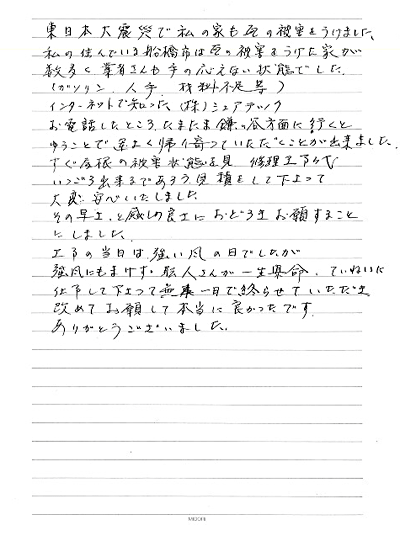 東日本大震災で私の家も瓦の被害をうけました。
私の住んでいる船橋市は瓦の被害をうけた家が
数多く業者さんも手の応えない状態でした。
(ガソリン、人手、材料不足等)
インターネットで知った(株)シェアテック
お電話したところ、たまたま鎌ヶ谷方面に行くと
ゆうことで運よく帰り寄っていただくことが出来ました。
すぐ屋根の被害状態を見 修理工事代
いつごろ出来るであろう見積をして下さって
大変安心いたしました
その早さ、と感じの良さにおどろきお願すること
にしました。
工事の当日は強い風の日でしたが
強風にもまけず、職人さんが一生懸命、ていねいに
仕事して下さって無事一日で終らせていただき
改めてお願して本当に良かったです。
ありがとうございました。
MIDORI